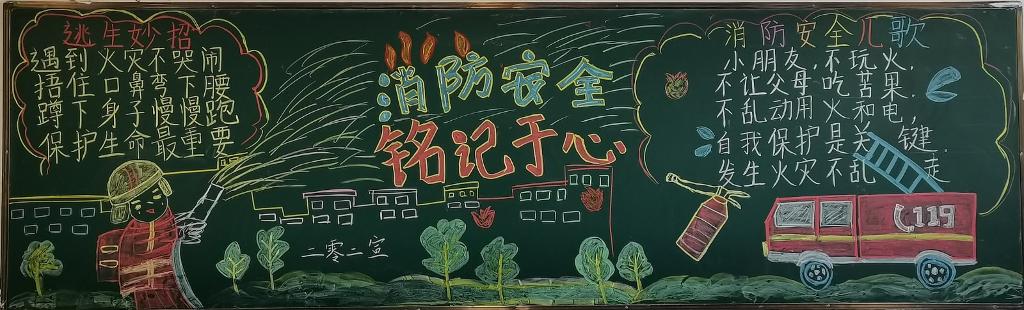 逃生妙招
遇到火灾不哭闹
捂住口鼻弯下腰
蹲下身子慢慢跑
保护生命最重要
消防安全
铭记于心
二零二宣
消防安全儿歌
小朋友，不玩火，
不让父母吃苦果，
不乱动用火和电，
自我保护是关键．
发生火灾不乱走
119